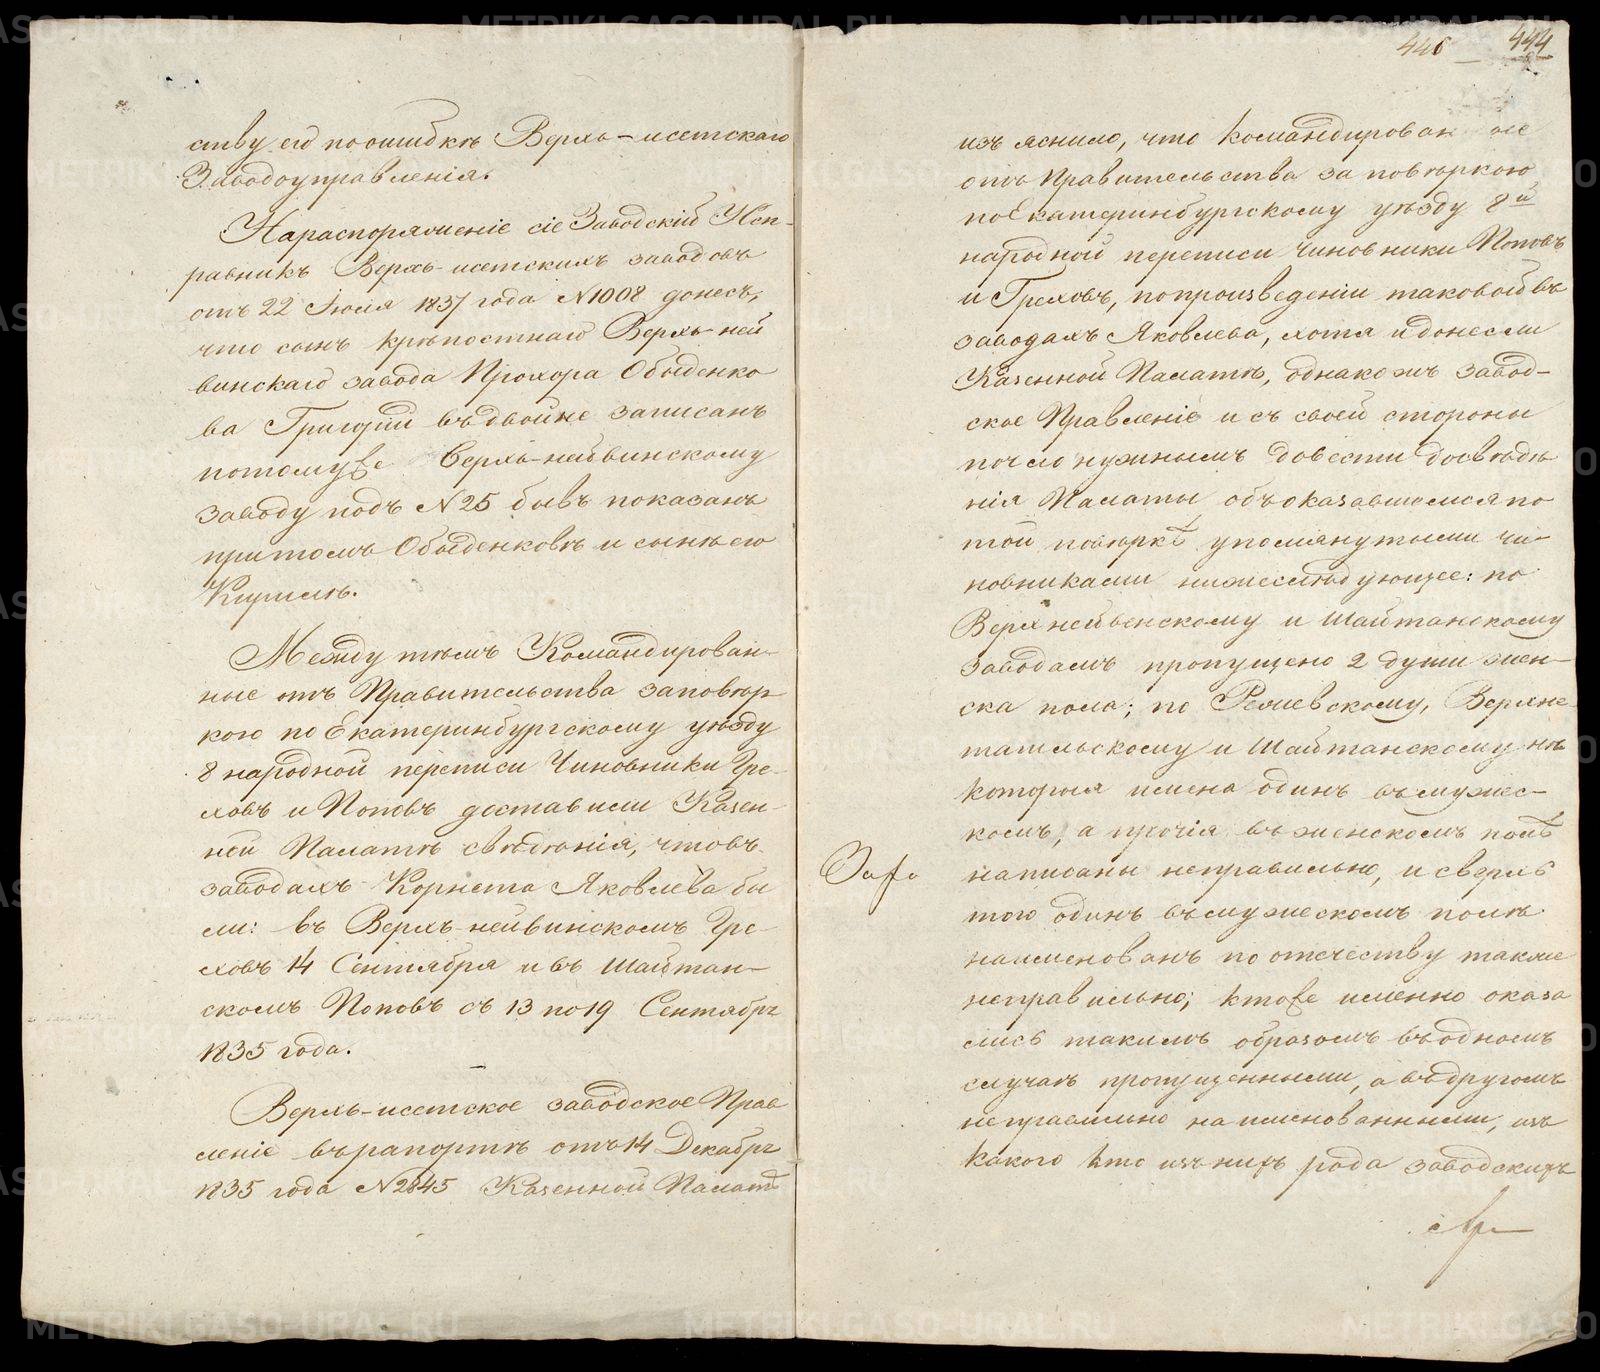 ству его по ошибкѣ Верхъ-исетскаго
Заводоуправленія.
На распоряженіе сіе Заводскій Исп-
равникъ Верхъ-исетскихъ заводовъ
отъ 22 Іюля 1837 года N 1008 донесъ,
что сынъ крѣпостнаго Верхъ-ней
винскаго завода Прохора Обыденко
ва Григорій въ двойне записанъ
потому же Верхъ-нейвинскому
заводу подъ N 25 бывъ показанъ
при томъ Обыденковѣ и сынѣ его
Кирилѣ.
Между тѣмъ Командирован-
ные отъ Правительства за повѣр
кою по Екатеринбургскому уѣзду
8 народной переписи Чиновники Гре-
ховъ и Поповъ доставили Казен-
ной Палатѣ свѣдѣнія, что въ
заводахъ Корнета Яковлева бы
ли: въ Верхъ-нейвинскомъ Гре-
ховъ 14 Сентября и въ Шайтан-
скомъ Поповъ съ 13 по 19 Сентября
1835 года.
Верхъ-исетское заводское Прав
леніе въ рапортѣ отъ 14 Декабря
1835 года N 2845 Казенной Палатѣ
446 444
изъяснило, что командированные
отъ Правительства за повѣркою
по Екатеринбургскому уѣзду 8й
народной переписи чиновники Поповъ
и Греховъ, по произведеніи таковой въ
заводахъ Яковлева, хотя и донесли
Казенной Палатѣ, однакожъ завод-
ское Правленіе и съ своей стороны
почло нужнымъ довести до свѣдѣ
нія Палаты объ оказавшемся по
той повѣркѣ упомянутыми чи-
новниками нижеслѣдующее: по
Верхнейвенскому и Шайтанскому
заводамъ пропущено 2 души жен-
ска пола; по Режевскому, Верхне
тагильскому и Шайтанскому нѣ
которыя имена одинъ въ мужес-
комъ, а прочія въ женскомъ полѣ
написаны неправильно, и сверхъ
того одинъ въ мужескомъ полѣ
наименованъ по отечеству также
неправильно; кто же именно оказа
лись такимъ образомъ въ одномъ
случаѣ пропущенными, а въ другомъ
неправильно наименованными, изъ
какого кто изъ нихъ рода заводскихъ
METRIKI.GASO-URAL.RU